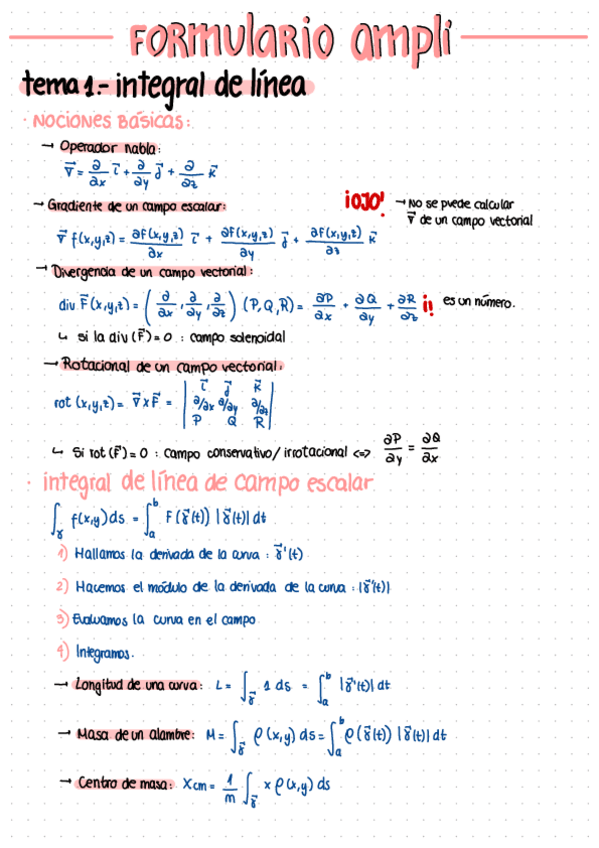 FORMULARIO AMPLI
tema 1.- integral de línea
· NOCIONES BÁSICAS:
→ Operador nabla:
∇⃗ = ∂/∂x i⃗ + ∂/∂y j⃗ + ∂/∂z k⃗
→ Gradiente de un campo escalar:
¡OJO! → No se puede calcular
∇⃗ de un campo vectorial
∇⃗ f(x,y,z) = ∂f(x,y,z)/∂x i⃗ + ∂f(x,y,z)/∂y j⃗ + ∂f(x,y,z)/∂z k⃗
→ Divergencia de un campo vectorial:
div F⃗(x,y,z) = (∂/∂x, ∂/∂y, ∂/∂z) (P,Q,R) = ∂P/∂x + ∂Q/∂y + ∂R/∂z ¡! es un número.
↳ si la div (F⃗) = 0 : campo solenoidal
→ Rotacional de un campo vectorial:
rot (x,y,z) = ∇⃗ x F⃗ = | i⃗ j⃗ k⃗ |
| ∂/∂x ∂/∂y ∂/∂z |
| P Q R |
↳ Si rot (F⃗) = 0 : campo conservativo/irrotacional <=> ∂P/∂y = ∂Q/∂x
· integral de línea de campo escalar
∫γ f(x,y) ds = ∫ₐᵇ F(γ⃗(t)) |γ⃗(t)| dt
1) Hallamos la derivada de la curva : γ⃗'(t)
2) Hacemos el módulo de la derivada de la curva : |γ⃗'(t)|
3) Evaluamos la curva en el campo
4) Integramos.
→ Longitud de una curva: L = ∫γ⃗ 1 ds = ∫ₐᵇ |γ⃗'(t)| dt
→ Masa de un alambre: M = ∫γ⃗ ρ(x,y) ds = ∫ₐᵇ ρ(γ⃗(t)) |γ⃗(t)| dt
→ Centro de masa: Xcm = 1/m ∫γ⃗ x ρ(x,y) ds